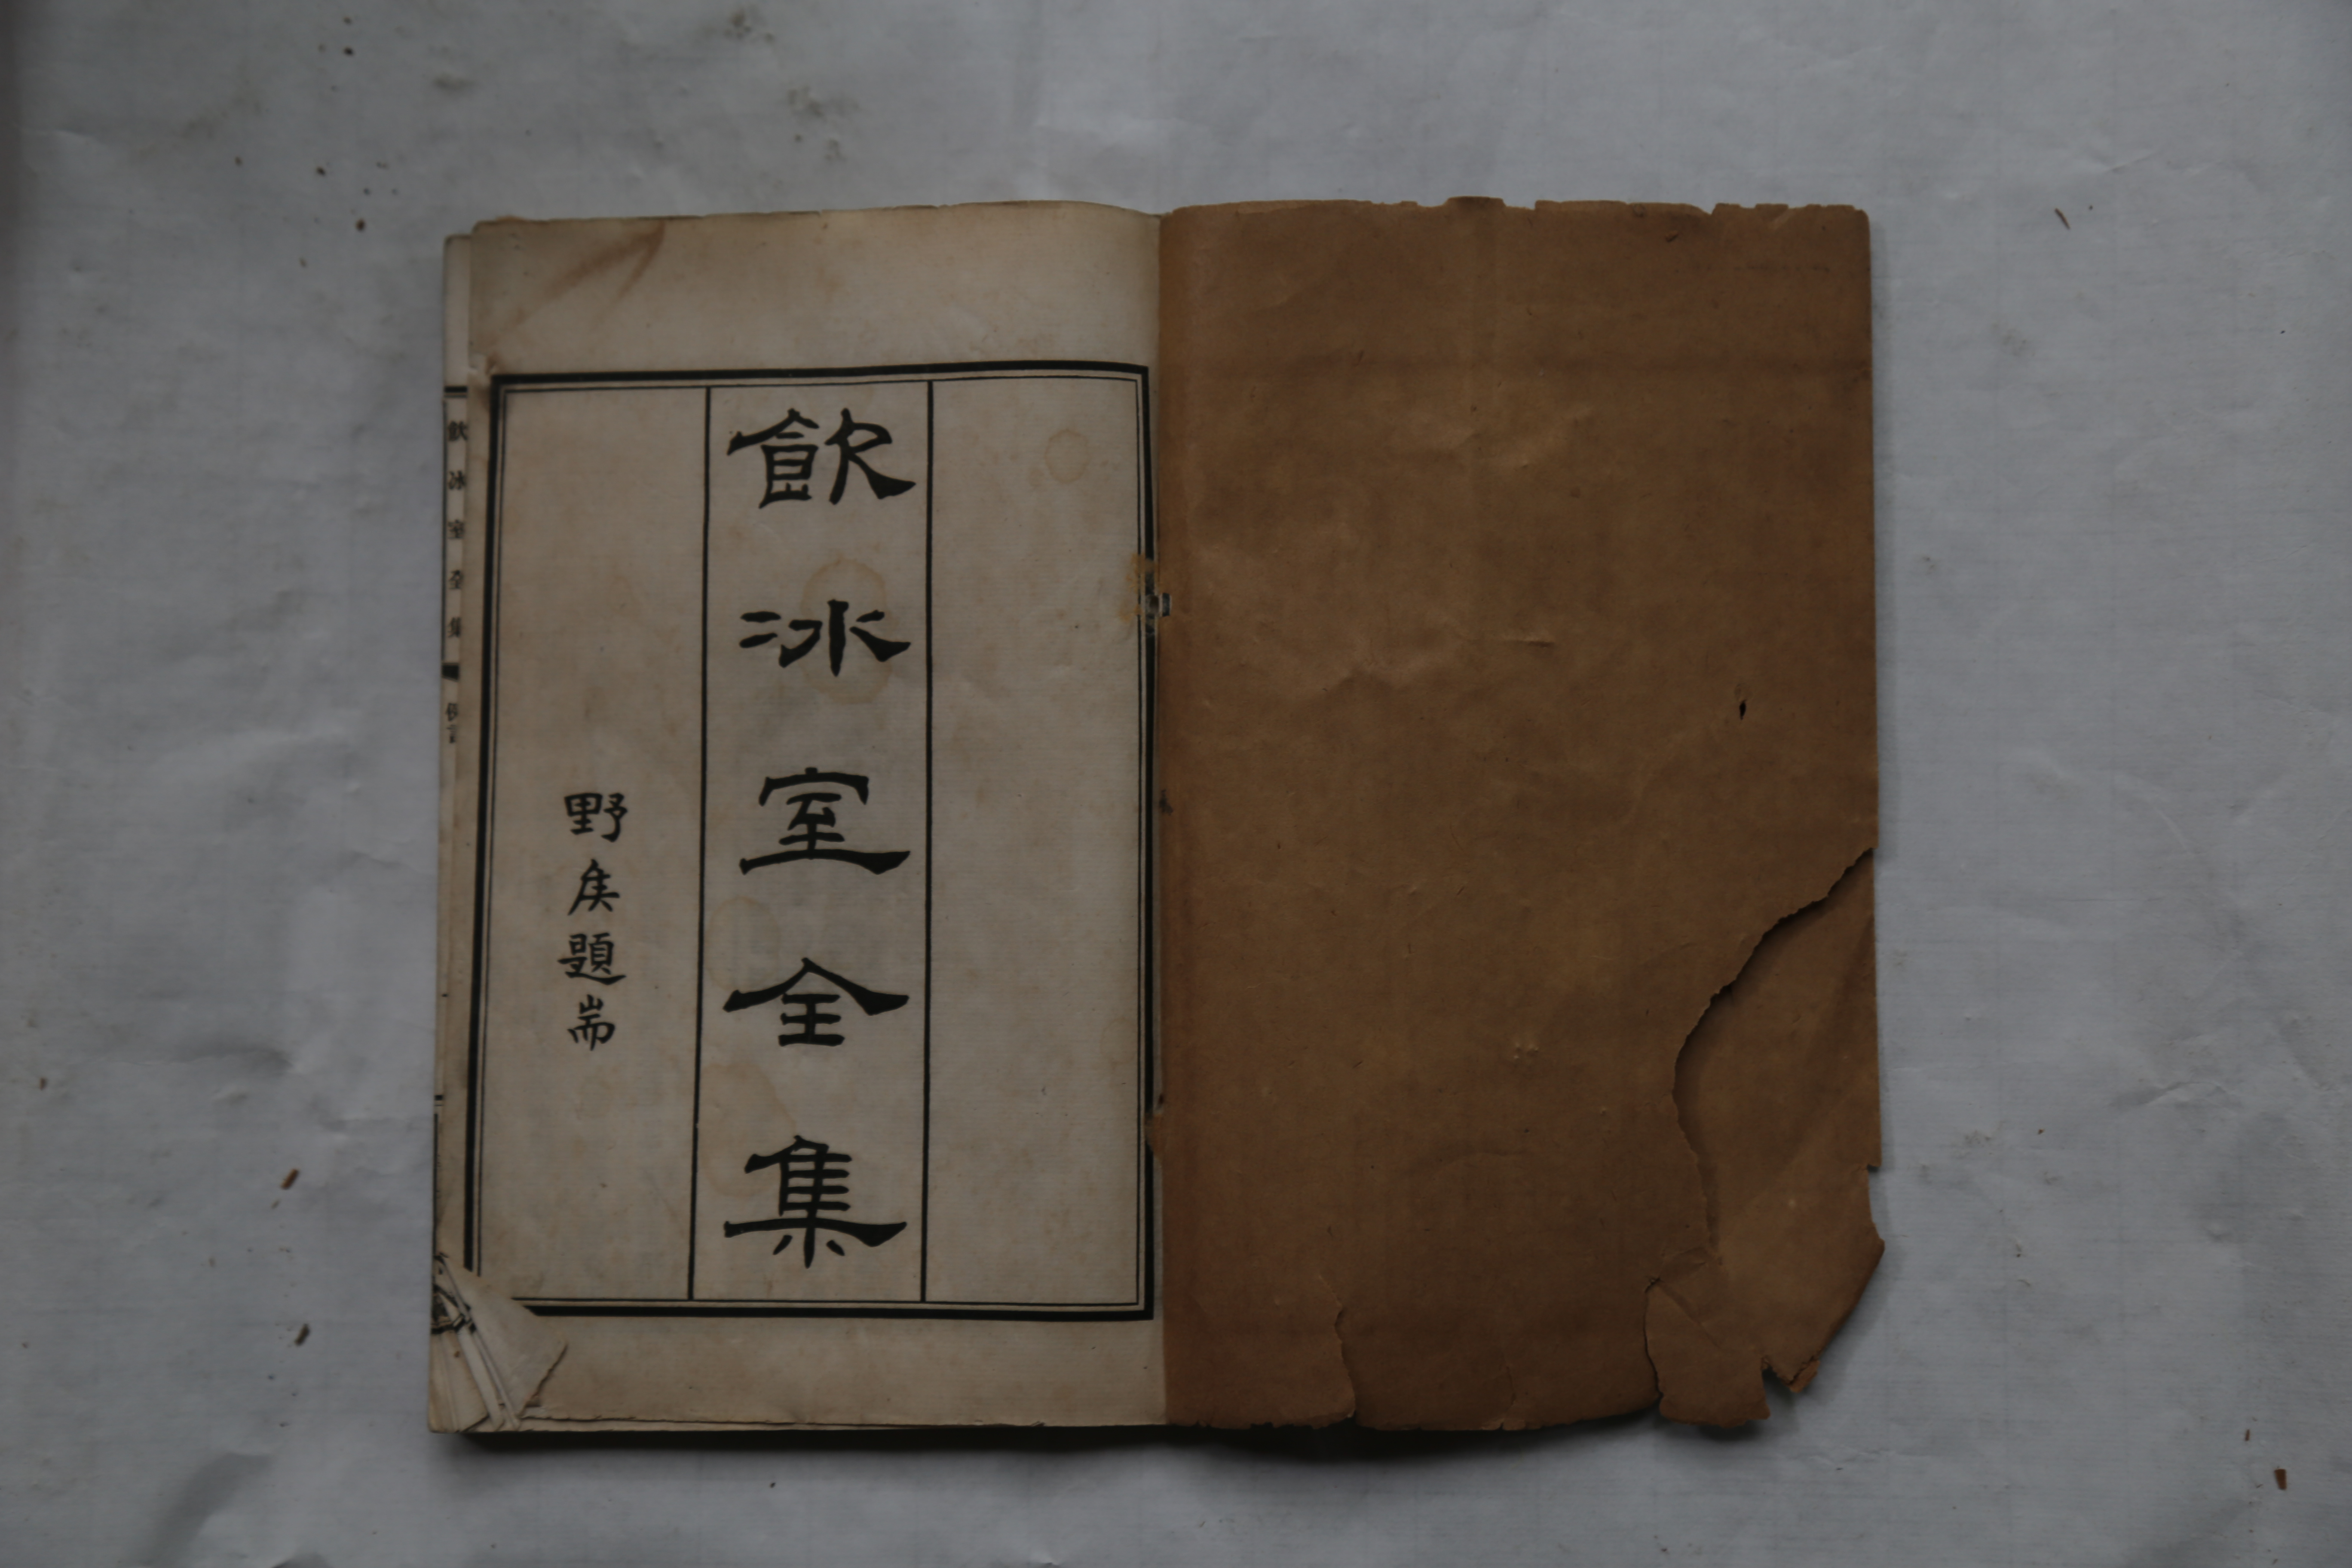 飲冰室全集
野矦題耑
飲冰室全集 例言